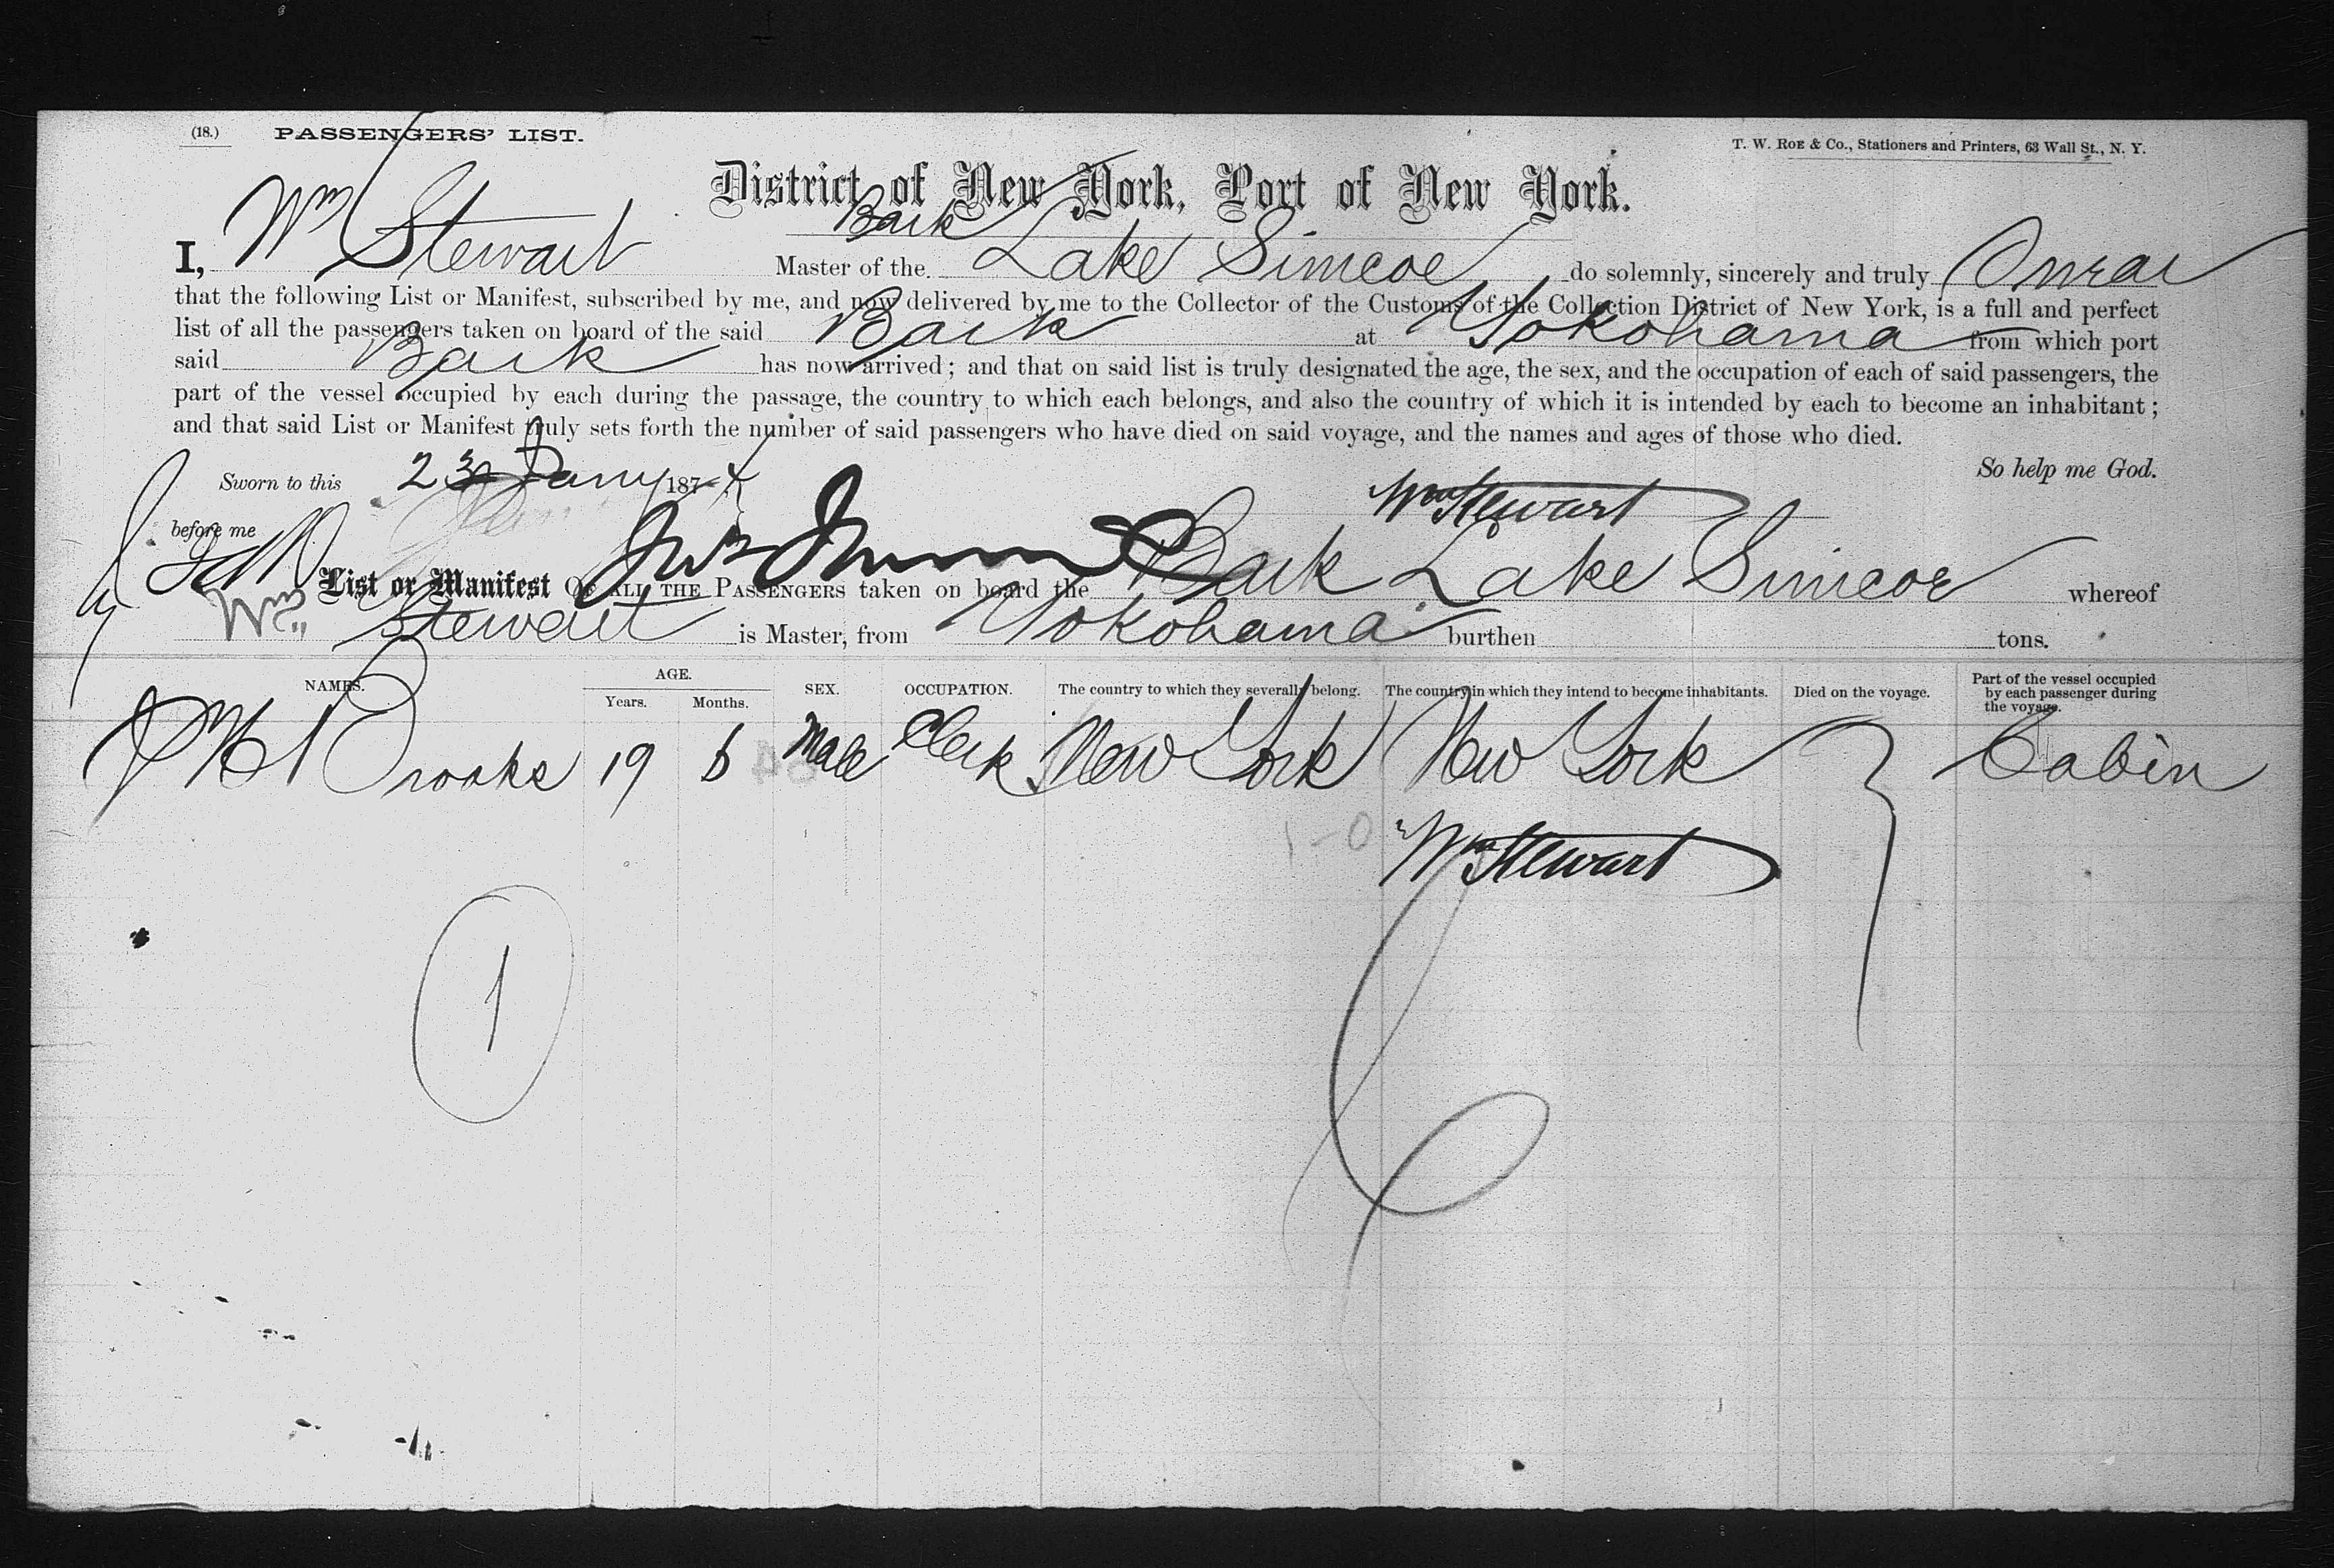 (18.) PASSENGERS' LIST.
T. W. ROE & Co., Stationers and Printers, 63 Wall St., N. Y.
District of New York, Port of New York.
Bark
I, Wm Stewart Master of the Lake Simcoe do solemnly, sincerely and truly
that the following List or Manifest, subscribed by me, and now delivered by me to the Collector of the Customs of the Collection District of New York, is a full and perfect
list of all the passengers taken on board of the said Bark at Yokohama from which port
said Bark has now arrived; and that on said list is truly designated the age, the sex, and the occupation of each of said passengers, the
part of the vessel occupied by each during the passage, the country to which each belongs, and also the country of which it is intended by each to become an inhabitant;
and that said List or Manifest truly sets forth the number of said passengers who have died on said voyage, and the names and ages of those who died.
So help me God.
Sworn to this 23 Jany 1874
Wm Stewart
before me
List or Manifest OF ALL THE PASSENGERS taken on board the Bark Lake Simcoe whereof
Wm Stewart is Master, from Yokohama burthen tons.
NAMES. AGE. Years. Months. SEX. OCCUPATION. The country to which they severally belong. The country in which they intend to become inhabitants. Died on the voyage. Part of the vessel occupied by each passenger during the voyage.
Brooks 19 6 Male Clerk New York New York Cabin
Wm Stewart
1